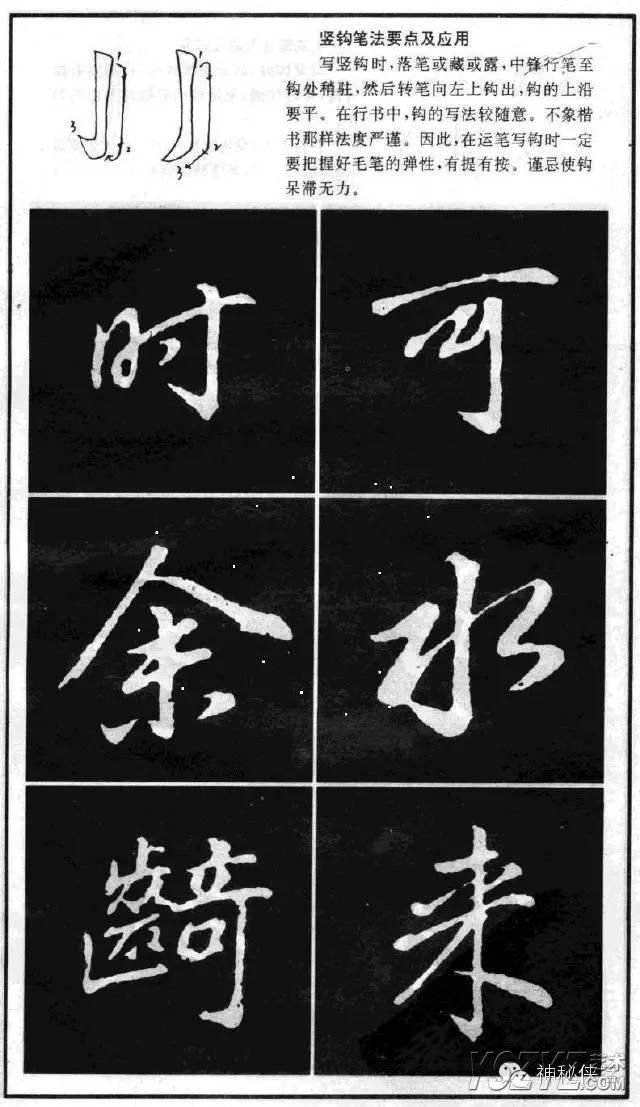 竖钩笔法要点及应用
写竖钩时,落笔或藏或露,中锋行笔至
钩处稍驻,然后转笔向左上钩出,钩的上沿
要平。在行书中,钩的写法较随意。不象楷
书那样法度严谨。因此,在运笔写钩时一定
要把握好毛笔的弹性,有提有按。谨忌使钩
呆滞无力。
1
2
3
1
2
3
时
可
余
水
齮
来
神秘侠